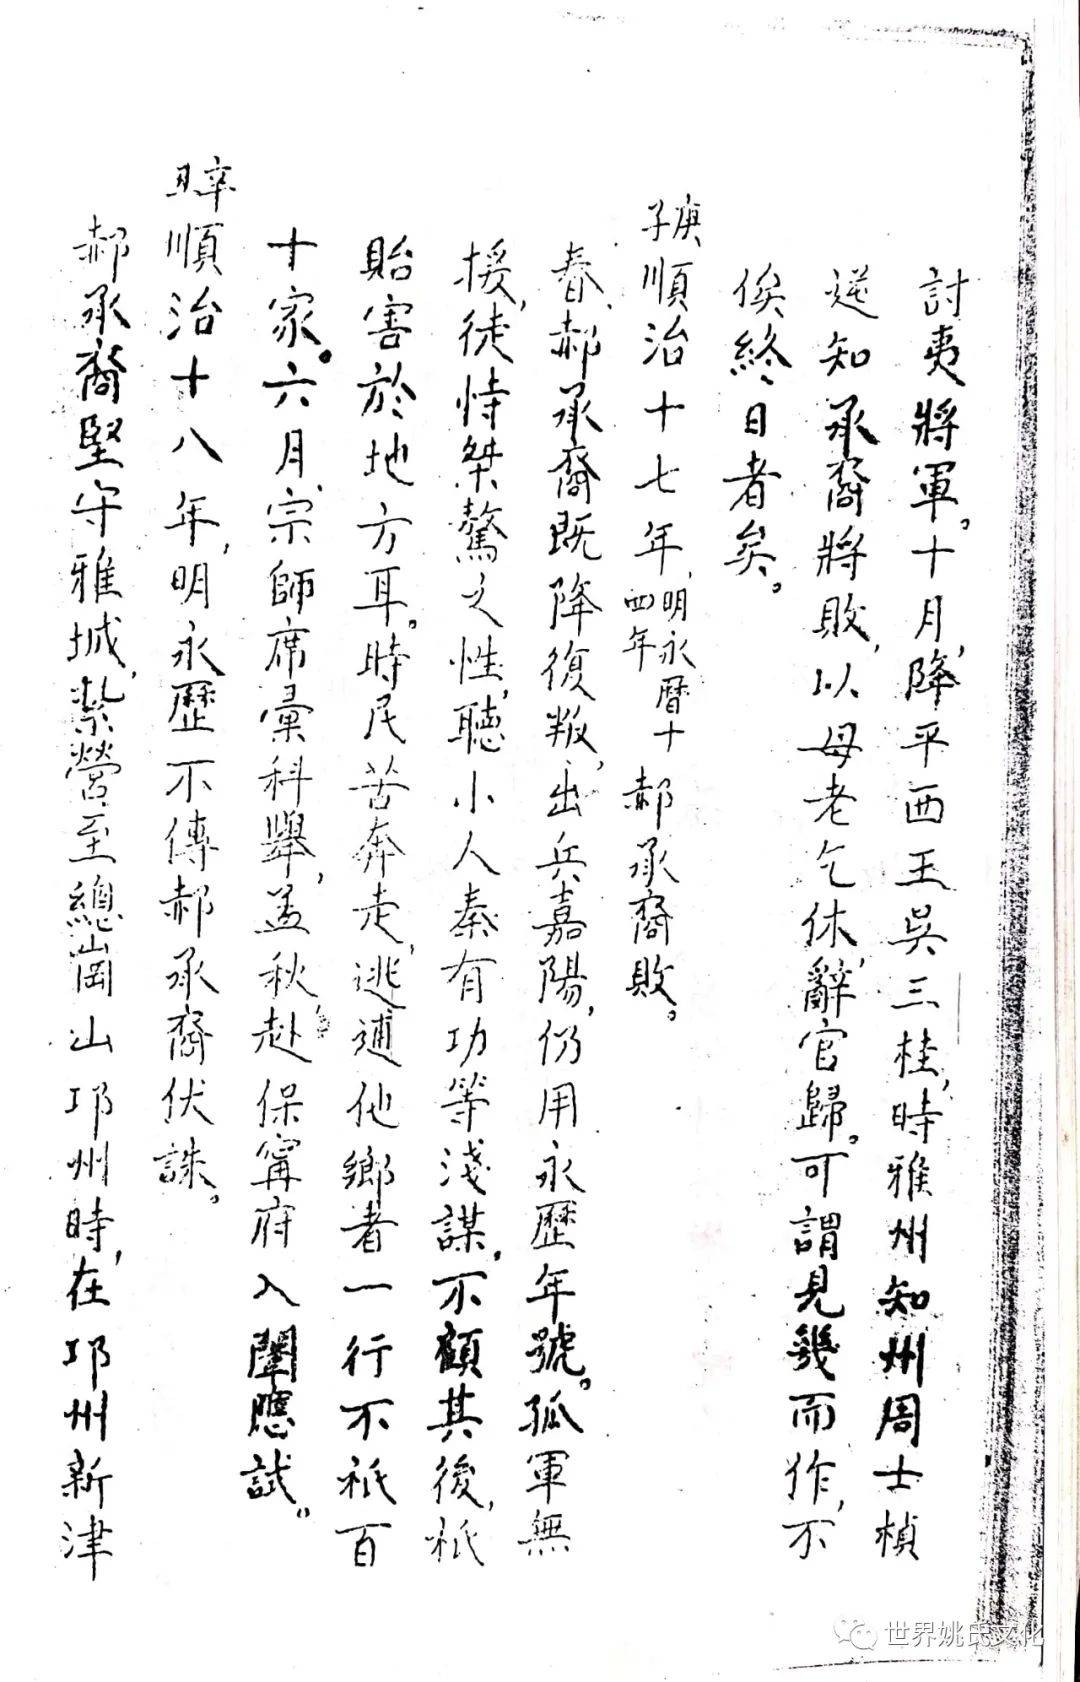 討夷將軍。十月,降平西王吳三桂,時雅州知州周士楨
逆知承裔將敗,以母老乞休,辭官歸。可謂見幾而作,不
俟終日者矣。
庚子順治十七年,明永曆十四年郝承裔敗。
春,郝承裔既降復叛,出兵嘉陽,仍用永歷年號。孤軍無
援,徒恃桀驁之性,聽小人秦有功等淺謀,不顧其後,祇
貽害於地方耳。時民苦奔走,逃逋他鄉者一行不祇百
十家。六月,宗師席彙科舉,孟秋,赴保寧府入闈應試。
辛丑順治十八年,明永歷不傳郝承裔伏誅。
郝承裔堅守雅城,紮營至總崗山邛州時,在邛州新津
世界姚氏文化